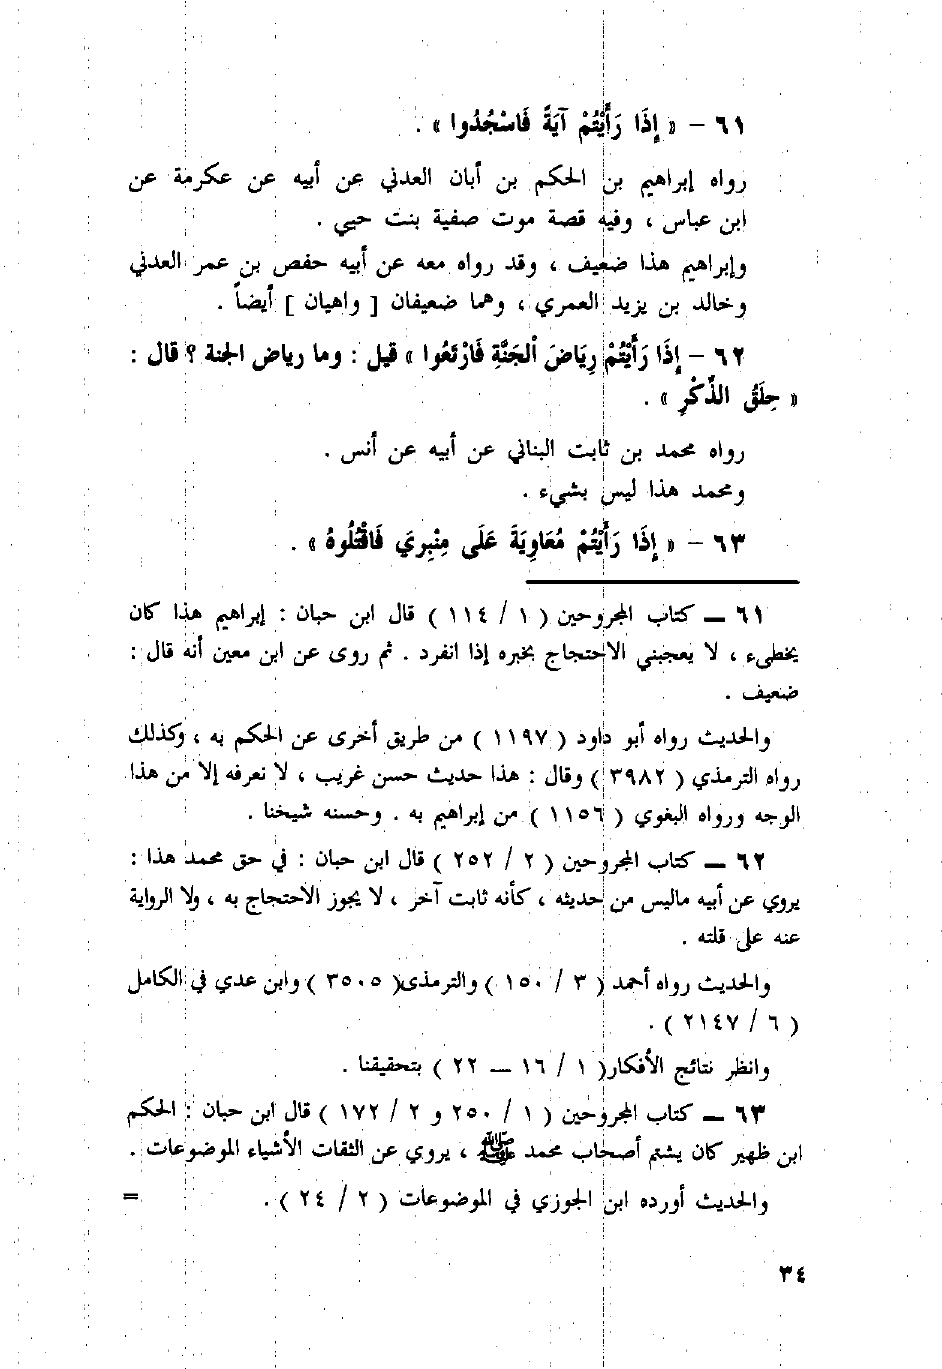 ٦١ – « إِذَا رَأَيْتُمْ آيَةً فَاسْجُدُوا » .
رواه إبراهيم بن الحكم بن أبان العدني عن أبيه عن عكرمة عن
ابن عباس ، وفيه قصة موت صفية بنت حيي .
وإبراهيم هذا ضعيف ، وقد رواه معه عن أبيه حفص بن عمر العدني
وخالد بن يزيد العمري ، وهما ضعيفان [ واهيان ] أيضاً .
٦٢ – إِذَا رَأَيْتُمْ رِيَاضَ اْلجَنَّةِ فَارْتَعُوا » قيل : وما رياض الجنة ؟ قال :
« حِلَقُ الذِّكْرِ » .
رواه محمد بن ثابت البناني عن أبيه عن أنس .
ومحمد هذا ليس بشيء .
٦٣ – « إِذَا رَأَيْتُمْ مُعَاوِيَةَ عَلَى مِنْبِرِي فَاقْتُلُوهُ » .
٦١ ــ كتاب المجروحين ( ١ / ١١٤ ) قال ابن حبان : إبراهيم هذا كان
يخطىء ، لا يعجبني الاحتجاج بخبره إذا انفرد . ثم روى عن ابن معين أنه قال :
ضعيف .
والحديث رواه أبو داود ( ١١٩٧ ) من طريق أخرى عن الحكم به ، وكذلك
رواه الترمذي ( ٣٩٨٢ ) وقال : هذا حديث حسن غريب ، لا نعرفه إلا من هذا
الوجه ورواه البغوي ( ١١٥٦ ) من إبراهيم به . وحسنه شيخنا .
٦٢ ــ كتاب المجروحين ( ٢ / ٢٥٢ ) قال ابن حبان : في حق محمد هذا :
يروي عن أبيه ماليس من حديثه ، كأنه ثابت آخر ، لا يجوز الاحتجاج به ، ولا الرواية
عنه على قلته .
والحديث رواه أحمد ( ٣ / ١٥٠ ) والترمذى( ٣٥٠٥ ) وابن عدي في الكامل
( ٦ / ٢١٤٧ ) .
وانظر نتائج الأفكار( ١ / ١٦ ــ ٢٢ ) بتحقيقنا .
٦٣ ــ كتاب المجروحين ( ١ / ٢٥٠ و ٢ / ١٧٢ ) قال ابن حبان : الحكم
ابن ظهير كان يشتم أصحاب محمد ﷺ ، يروي عن الثقات الأشياء الموضوعات .
والحديث أورده ابن الجوزي في الموضوعات ( ٢ / ٢٤ ) . =
٣٤